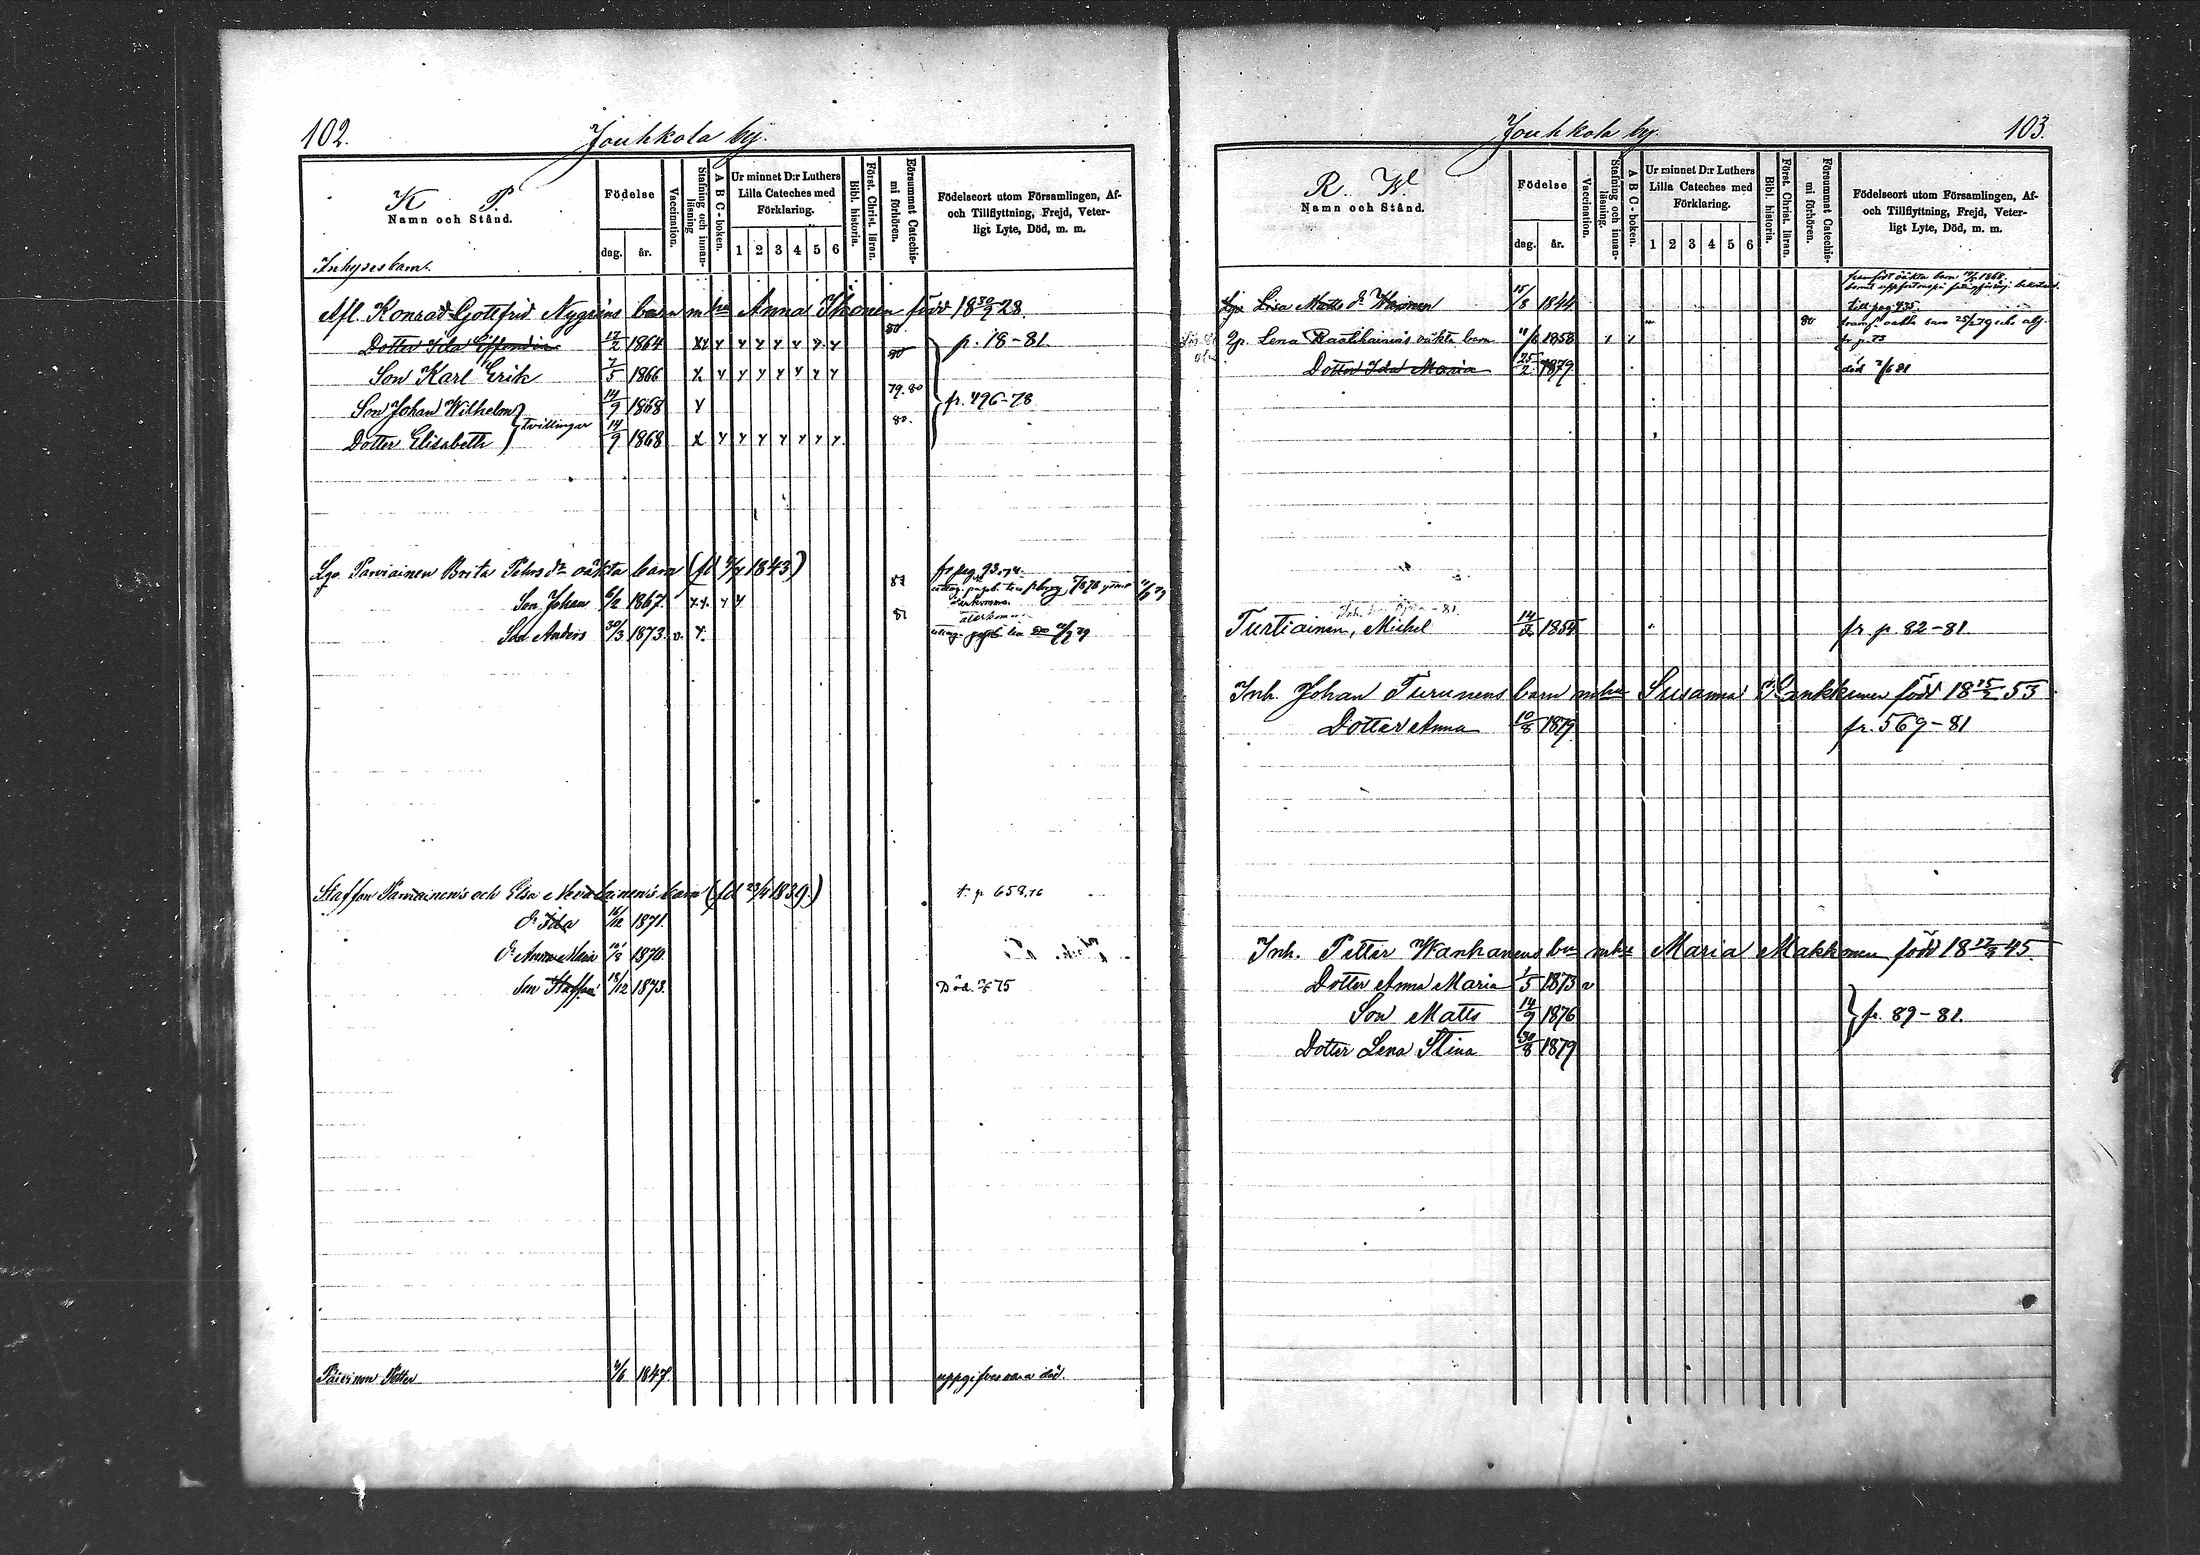 102.
Jouhkola by.
K P.
Namn och Stånd.
Födelse
dag. år.
Vaccination.
Stafning och innanläsning
A B C-boken.
Ur minnet D:r Luthers
Lilla Cateches med
Förklaring.
1 2 3 4 5 6
Bibl. historia.
Först. Christ. läran.
Försummat Catechismi förhören.
Födelseort utom Församlingen, Af-
och Tillflyttning, Frejd, Veter-
ligt Lyte, Död, m. m.
Inhysesbarn.
Afl. Konrad Gottfrid Nygréns barn m hu Anna Ikonen född 18 30/9 28.
Dotter Ida 1864 80 p. 18-81
Son Karl Erik 7/5 1866 80
Son Johan Wilhelm 14/9 1868 79.80 fr. 496-78
tvillingar
Dotter Elisabeth 14/9 1868 80.
Parviainen Brita Pehrs dr oäkta barn 1843)
fr pag 93
Son Johan 6/2 1867
Son Anders 30/3 1873 v. 81
Staffan Parviainens och Elsa Nevalainens barn (fd 23/4 1839.) t. p 658.76
dr Ida 1871.
dr Anna Maria 1870.
Son Staffan 13/12 1873. Död 75
Päivinen Petter /6 1847. uppgifves vara död.
Jouhkola by. 103.
R. W.
Namn och Stånd.
Födelse
dag. år.
Vaccination.
Stafning och innanläsning.
A B C-boken.
Ur minnet D:r Luthers
Lilla Cateches med
Förklaring.
1 2 3 4 5 6
Bibl. historia.
Först. Christ. läran.
Försummat Catechismi förhören.
Födelseort utom Församlingen, Af-
och Tillflyttning, Frejd, Veter-
ligt Lyte, Död, m. m.
framfödt oäkta barn 1868.
Lisa Matts dr 15/8 1844 till pag 435
Lena oäkta barn 1858 80 oäkta barn 25/2 79
Dotter Ida Maria 25/2 1879 död 81
Turtiainen, Michel 14/2 1854 fr p. 82-81
Inh. Johan Turunens barn m hu Susanna född 18 15/2 53
Dotter Anna 10/8 1879 fr. 569-81
Inh. Petter Wanhanens bn m hu Maria Makkonen född 18 45.
Dotter Anna Maria 1/5 1873 v
Son Matts 14/9 1876 fr. 89-81.
Dotter Lena Stina 30/8 1879